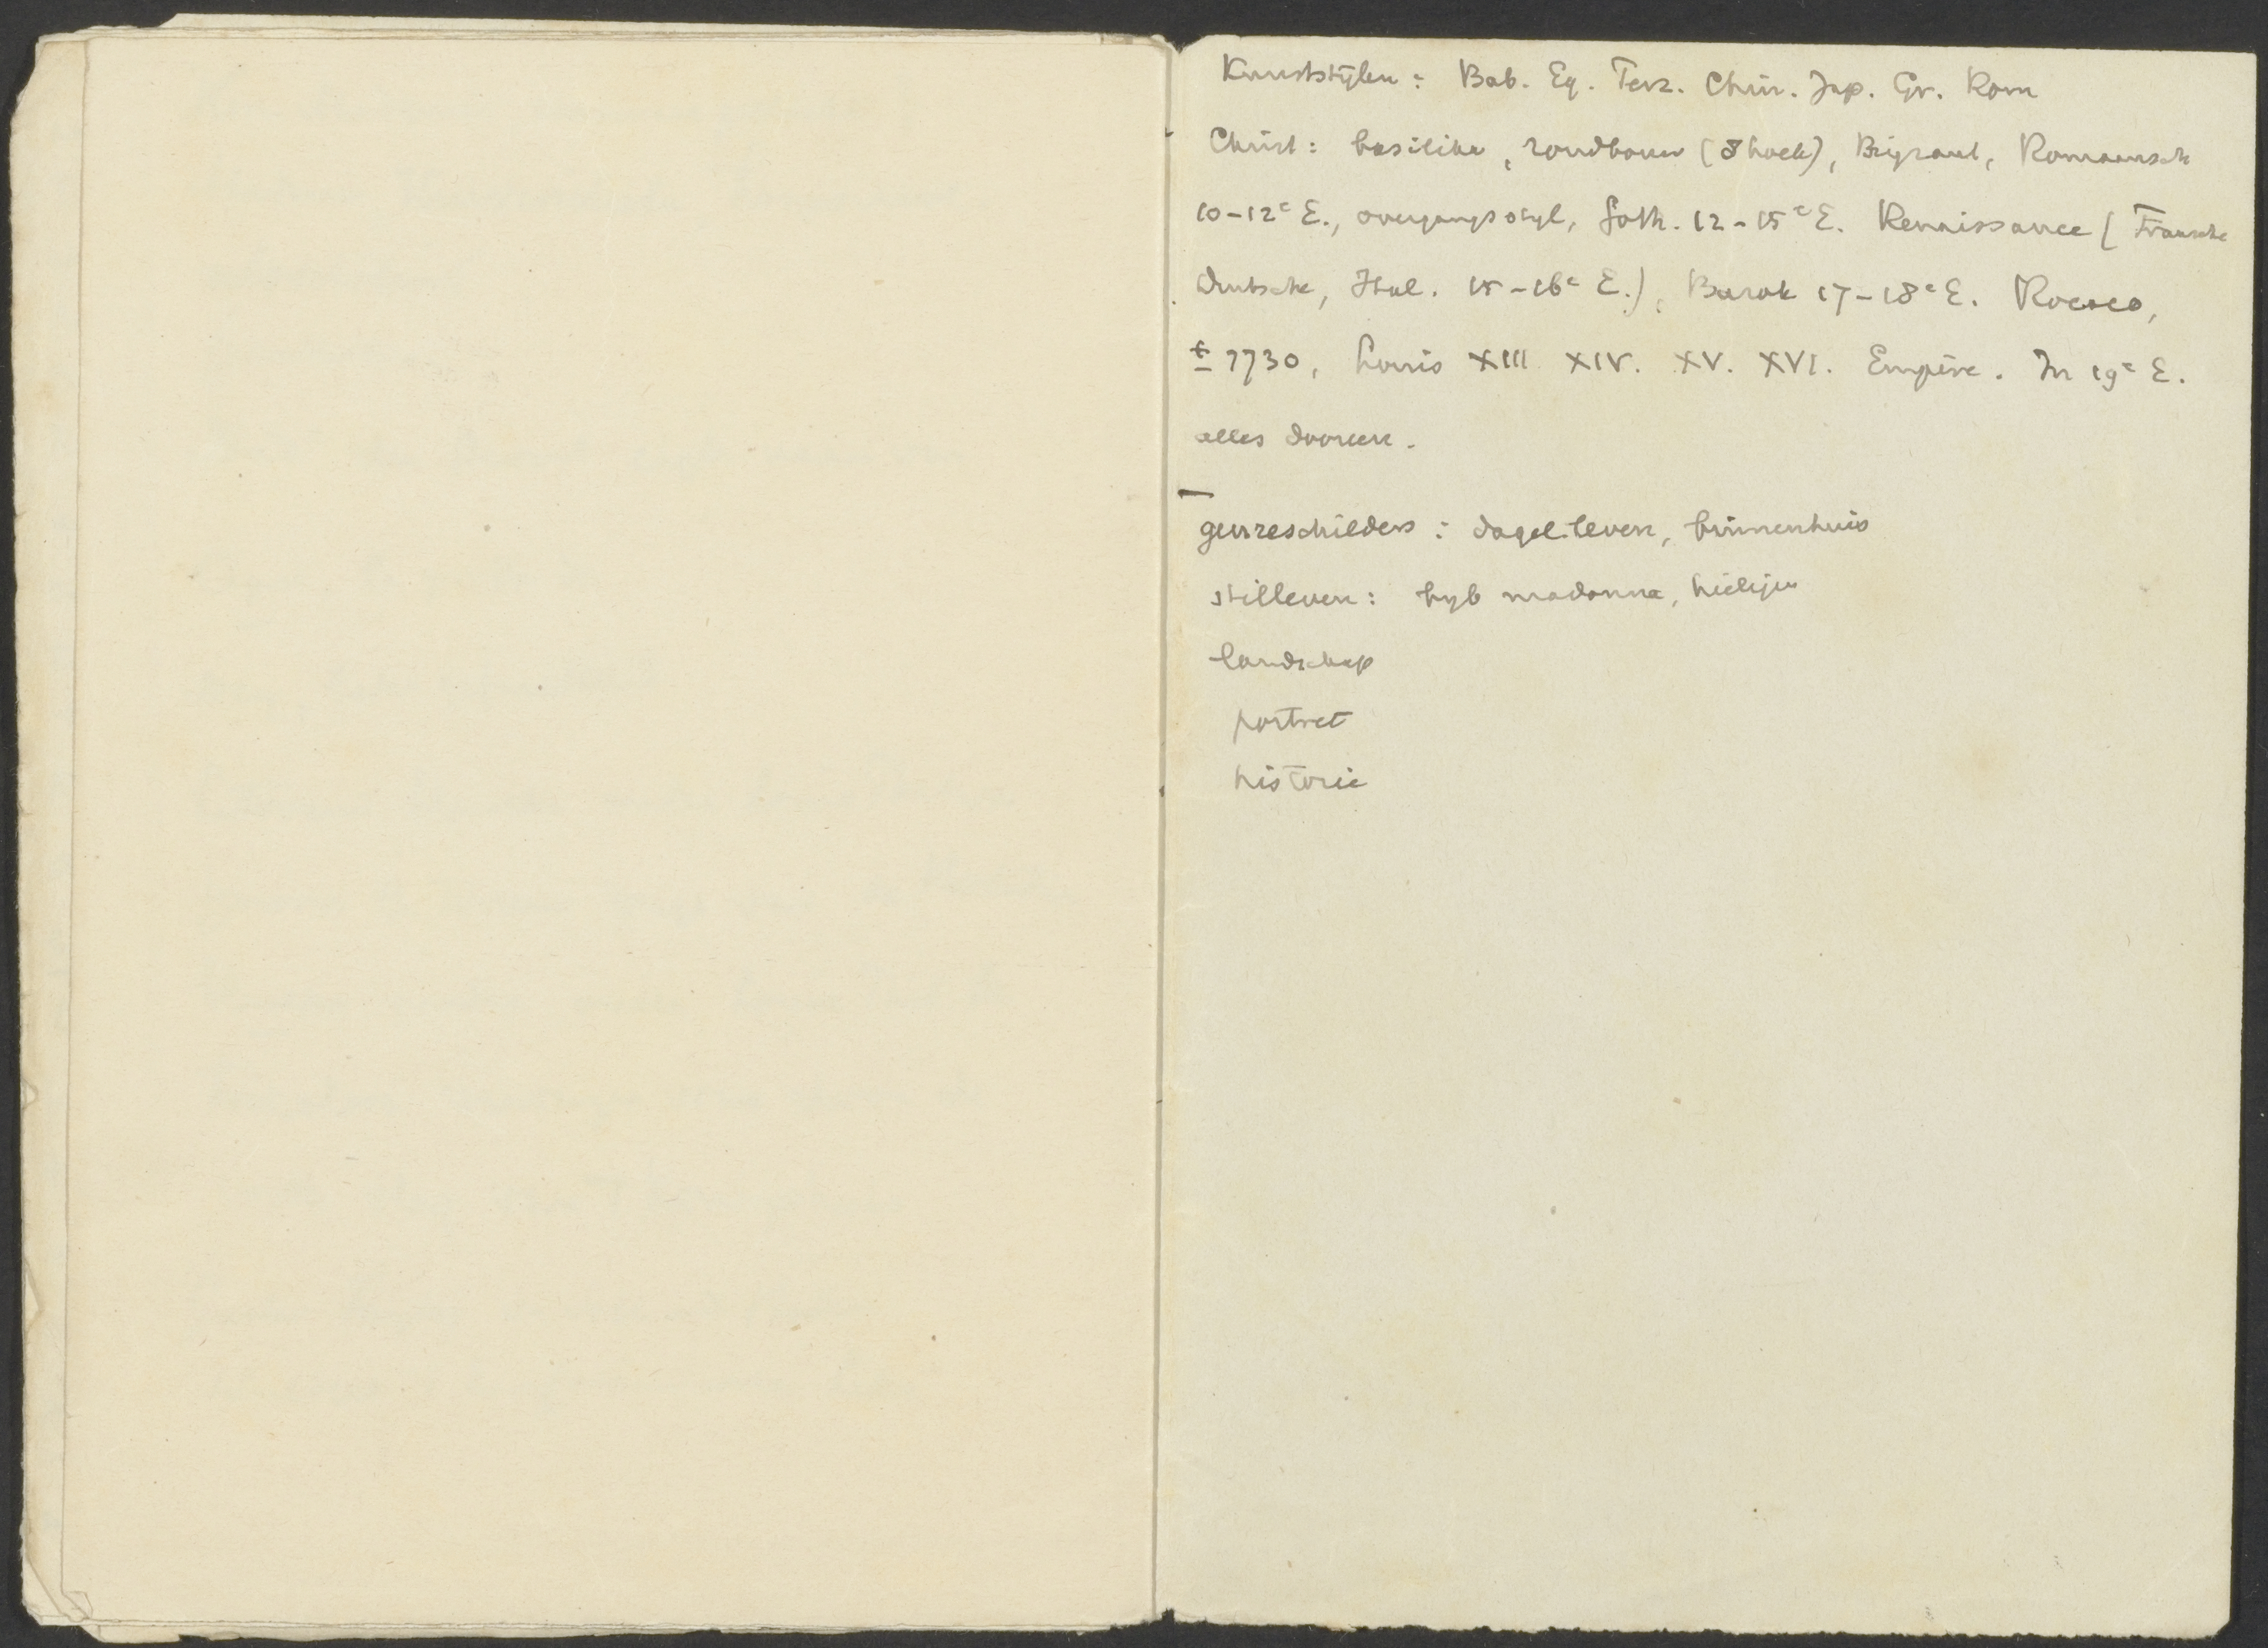 Kunststijlen: Bab. Eg. Perz. Chin. Jap. Gr. Rom
Christ: basilika, rondbouw (8hoek), Byzant, Romaansch
10-12e E., overgangsstyl, Goth. 12-15e E. Renaissance (Fransche
Duitsche, Ital. 15-16e E.), Barok 17-18e E. Rococo,
± 1730, Louis XIII XIV. XV. XVI. Empire. In 19e E.
alles dooreen.
genreschilders: dagel. leven, binnenhuis
stilleven: madonna,
landschap
portret
historie